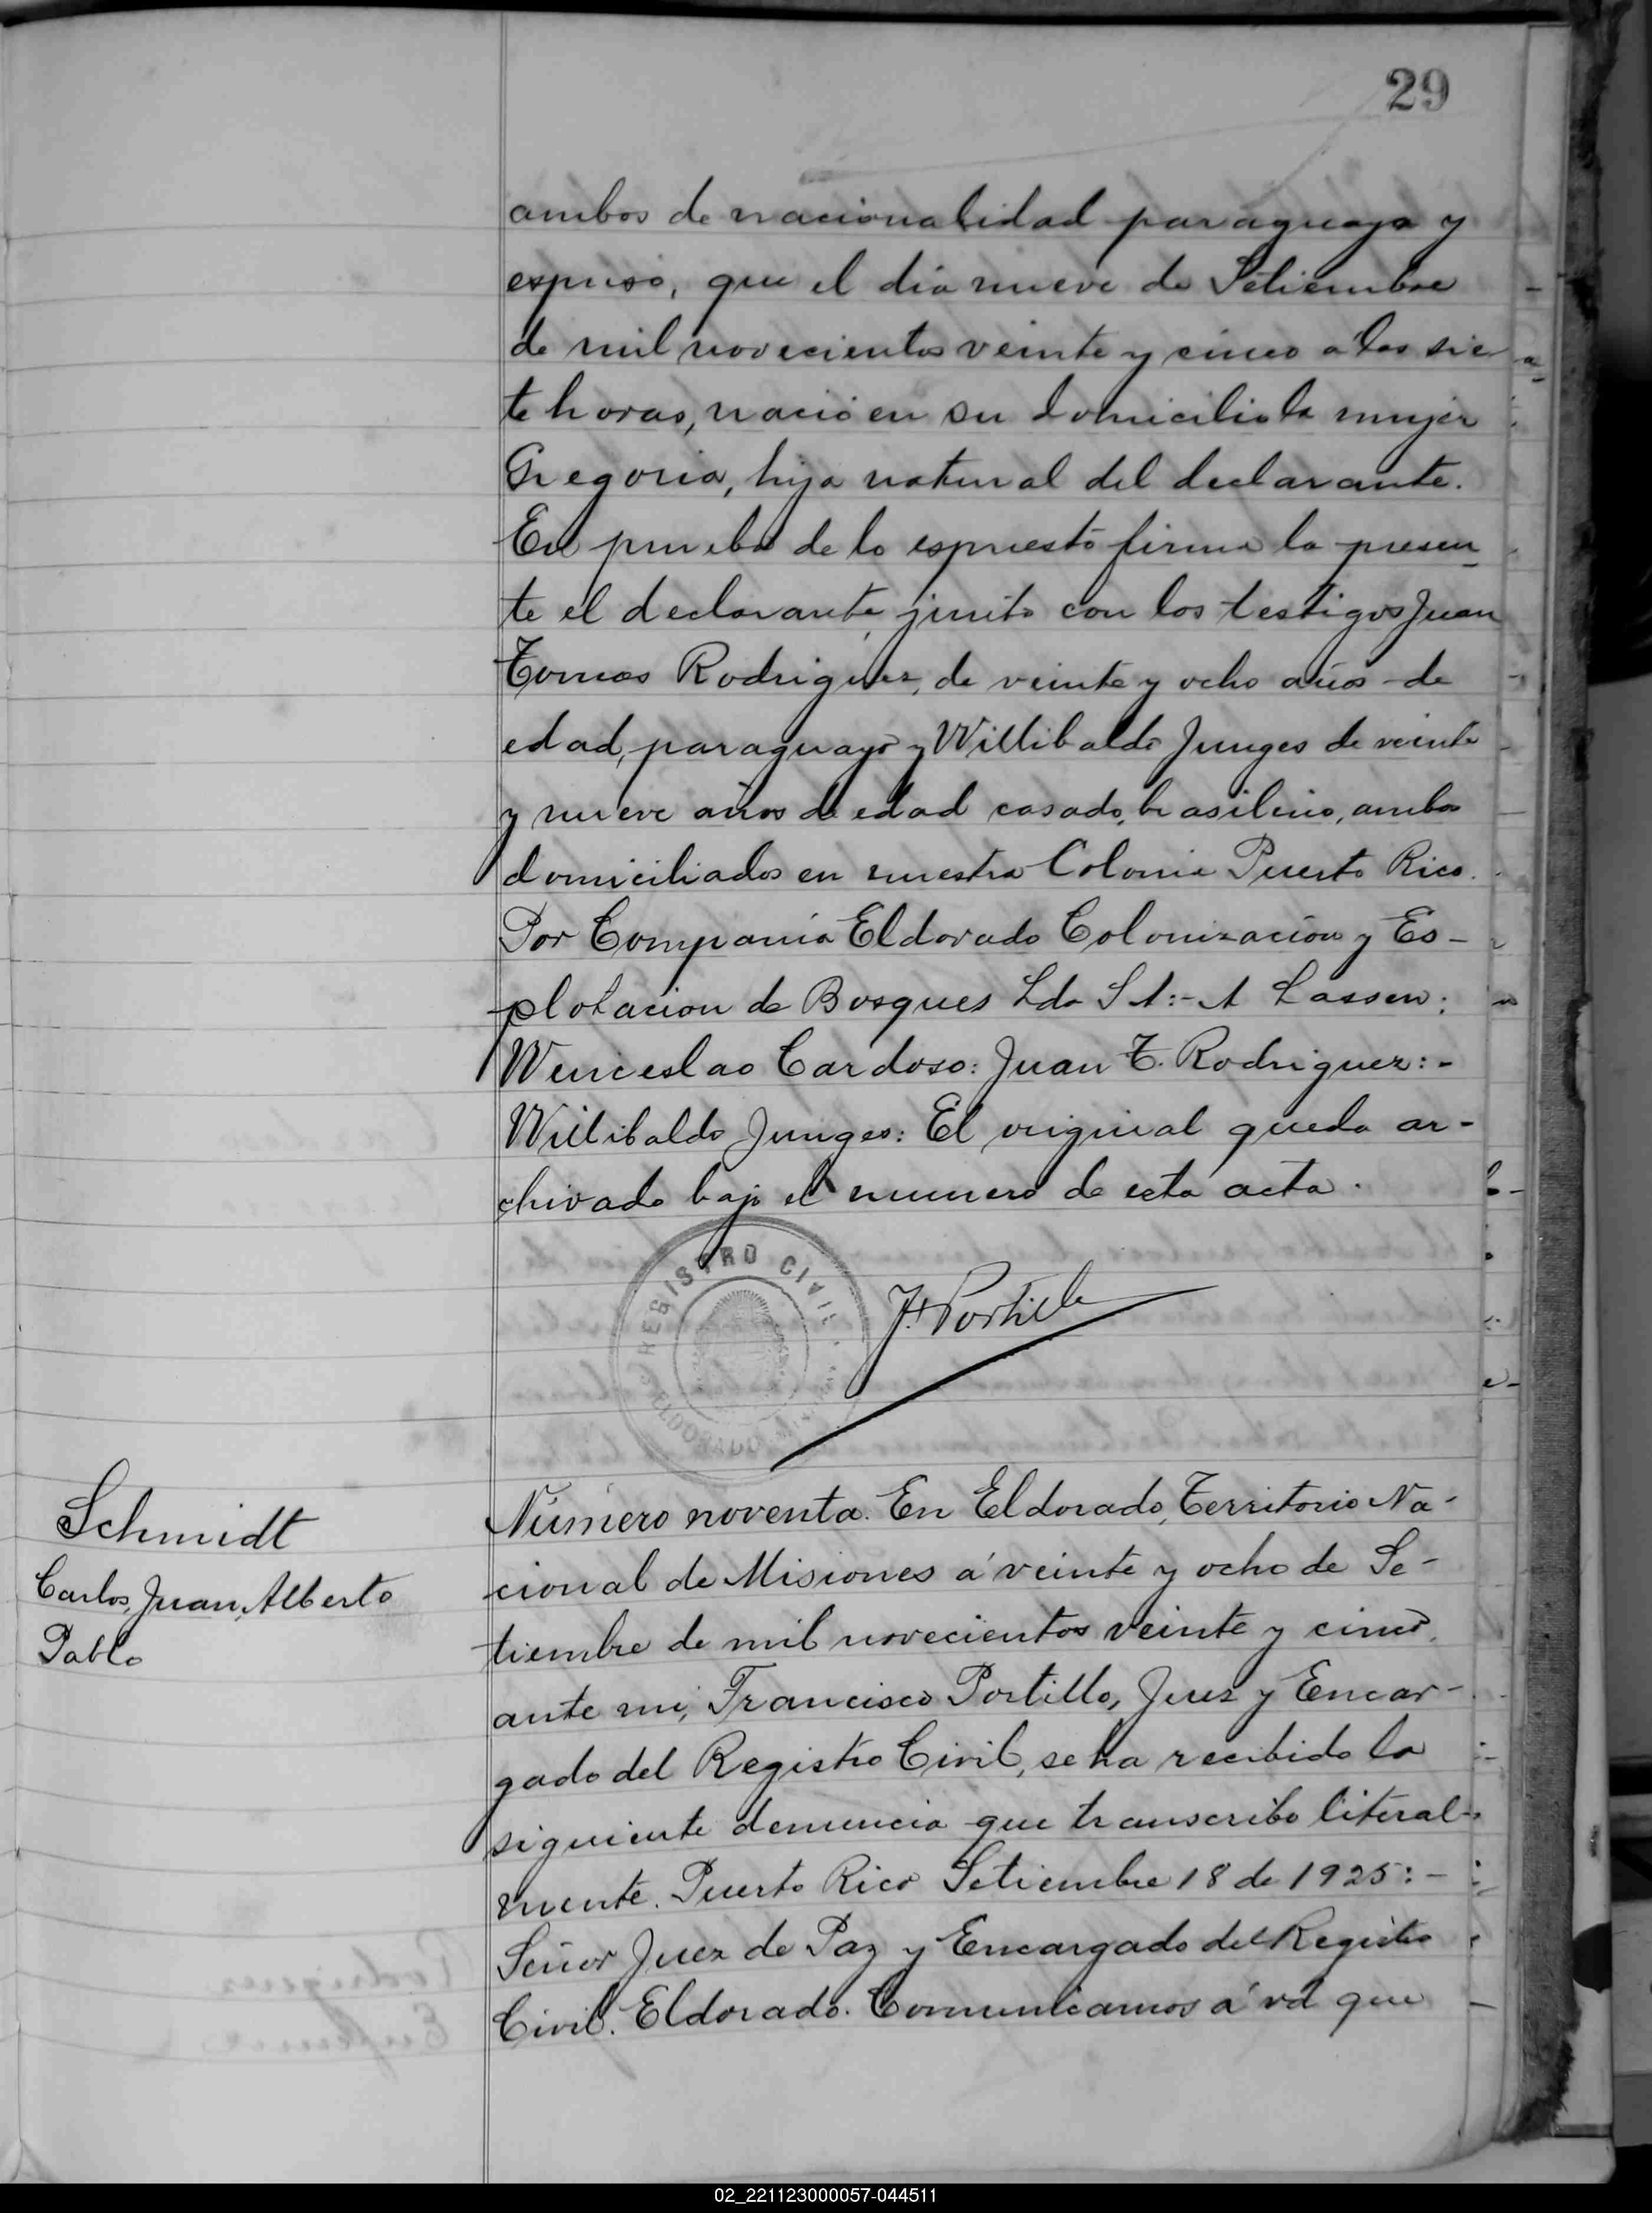 29
ambos de nacionalidad paraguaya y
espuso, que el dia nueve de Setiembre
de mil novecientos veinte y cinco a las sie
te horas, nació en su domicilio la mujer
Gregoria, hija natural del declarante.
En prueba de lo espuesto firma la presen
te el declarante, junto con los testigos Juan
Tomas Rodriguez, de veinte y ocho años de
edad, paraguayo y Willibaldo Junges de veinte
y nueve años de edad casado, brasilero, ambos
domiciliados en nuestra Colonia Puerto Rico.
Por Compania Eldorado Colonización y Es-
plotacion de Bosques Lda S A:- A Lassen:
Wenceslao Cardoso: Juan T. Rodriguez:-
Willibaldo Junges: El original queda ar-
chivado bajo el numero de esta acta.
REGISTRO CIVIL
ELDORADO
F. Portillo
Schmidt
Carlos, Juan, Alberto
Pablo
Número noventa. En Eldorado, Territorio Na-
cional de Misiones á veinte y ocho de Se-
tiembre de mil novecientos veinte y cinco,
ante mi, Francisco Portillo, Juez y Encar-
gado del Registro Civil, se ha recibido la
siguiente denuncia que transcribo literal-
mente. Puerto Rico Setiembre 18 de 1925:-
Señor Juez de Paz y Encargado del Registro
Civil. Eldorado. Comunicamos á vd que
02_221123000057-044511